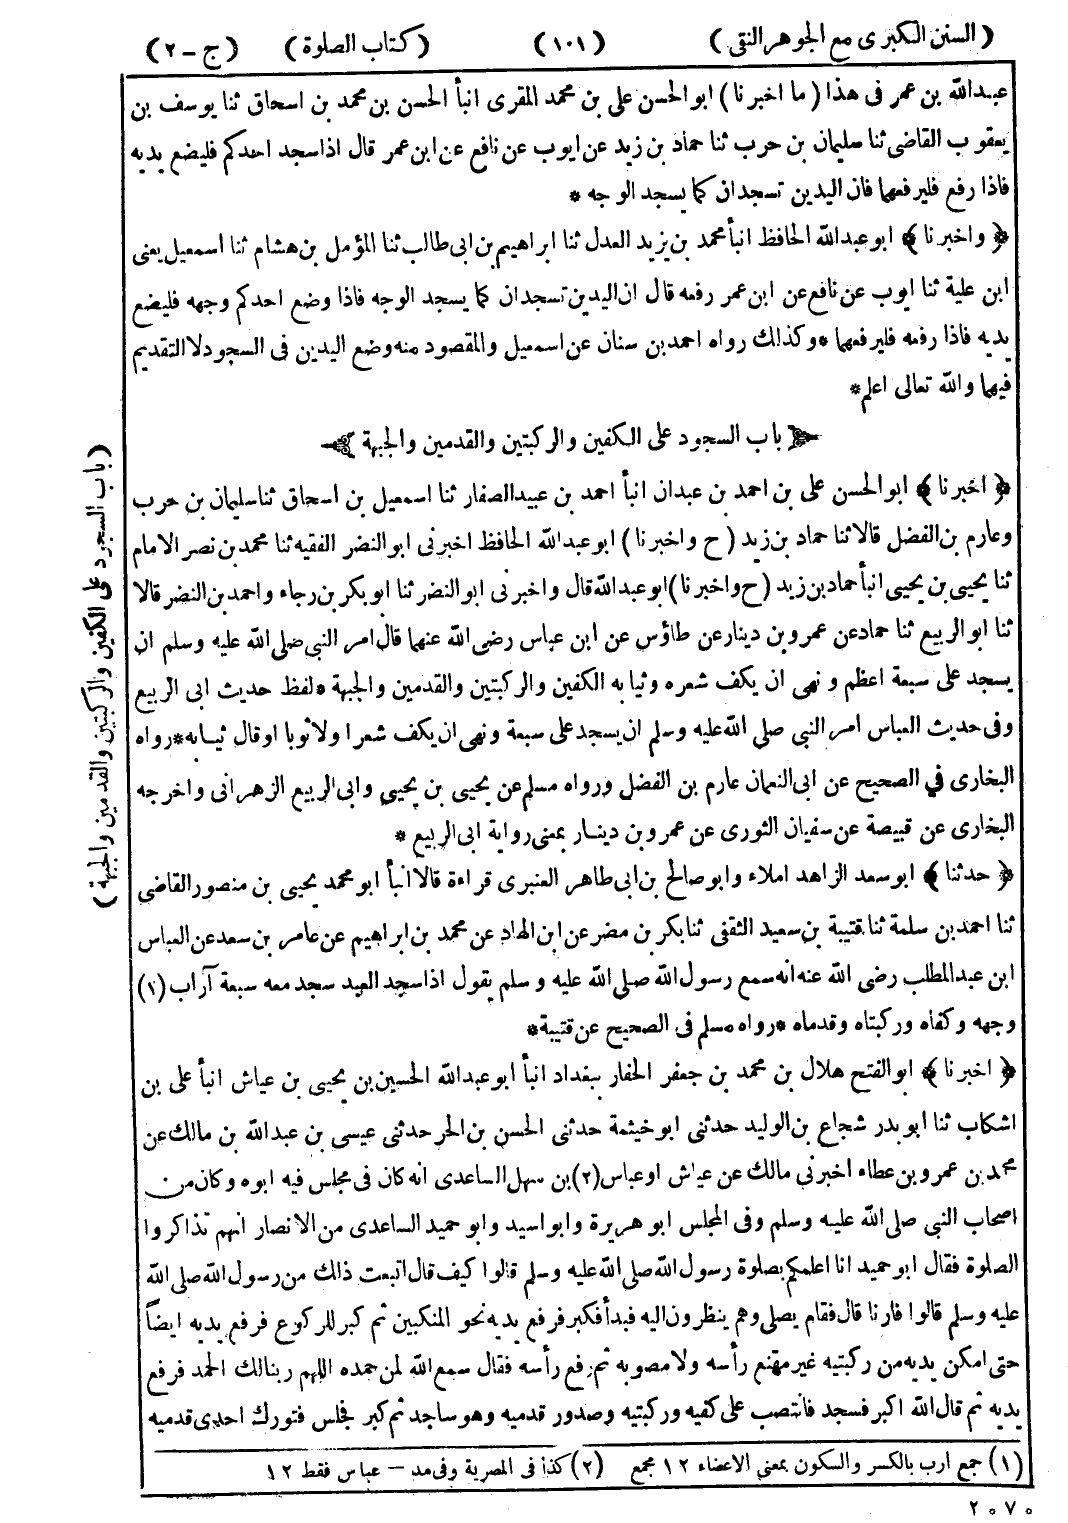 (السنن الكبرى مع الجوهر النقى) (١٠١) (كتاب الصلوة) (ج - ٢)
عبدالله بن عمر فى هذا (ما اخبرنا) ابوالحسن على بن محمد المقرى انبأ الحسن بن محمد بن اسحاق ثنا يوسف بن
يعقوب القاضى ثنا سليمان بن حرب ثنا حماد بن زيد عن ايوب عن نافع عن ابن عمر قال اذا سجد احدكم فليضع يديه
فاذا رفع فليرفعهما فان اليدين تسجدان كما يسجد الوجه *
﴿ واخبرنا ﴾ ابو عبدالله الحافظ انبأ محمد بن يزيد العدل ثنا ابراهيم بن ابى طالب ثنا المؤمل بن هشام ثنا اسمعيل يعنى
ابن علية ثنا ايوب عن نافع عن ابن عمر رفعه قال ان اليدين تسجدان كما يسجد الوجه فاذا وضع احدكم وجهه فليضع
يديه فاذا رفعه فليرفعهما * وكذلك رواه احمد بن سنان عن اسمعيل والمقصود منه وضع اليدين فى السجود لا التقديم
فيهما والله تعالى اعلم *
باب السجود على الكفين والركبتين والقدمين والجبهة
﴿ اخبرنا ﴾ ابوالحسن على بن احمد بن عبدان انبأ احمد بن عبيد الصفار ثنا اسمعيل بن اسحاق ثنا سليمان بن حرب
وعارم بن الفضل قالا ثنا حماد بن زيد (ح واخبرنا) ابو عبدالله الحافظ اخبرنى ابوالنضر الفقيه ثنا محمد بن نصر الامام
ثنا يحيى بن يحيى انبأ حماد بن زيد (ح واخبرنا) ابو عبدالله قال واخبرنى ابوالنضر ثنا ابوبكر بن رجاء واحمد بن النضر قالا
ثنا ابوالربيع ثنا حماد عن عمرو بن دينار عن طاؤس عن ابن عباس رضى الله عنهما قال امر النبى صلى الله عليه وسلم ان
يسجد على سبعة اعظم ونهى ان يكف شعره وثيابه الكفين والركبتين والقدمين والجبهة * لفظ حديث ابى الربيع
وفى حديث العباس امر النبى صلى الله عليه وسلم ان يسجد على سبعة ونهى ان يكف شعرا ولا ثوبا او قال ثيابه * رواه
البخارى في الصحيح عن ابى النعمان عارم بن الفضل ورواه مسلم عن يحيى بن يحيى وابى الربيع الزهرانى واخرجه
البخارى عن قبيصة عن سفيان الثورى عن عمرو بن دينار بمعنى رواية ابى الربيع *
﴿ حدثنا ﴾ ابوسعد الزاهد املاء وابوصالح بن ابى طاهر العنبرى قراءة قالا انبأ ابو محمد يحيى بن منصور القاضى
ثنا احمد بن سلمة ثنا قتيبة بن سعيد الثقفى ثنا بكر بن مضر عن ابن الهاد عن محمد بن ابراهيم عن عامر بن سعد عن العباس
ابن عبدالمطلب رضى الله عنه انه سمع رسول الله صلى الله عليه وسلم يقول اذا سجد العبد سجد معه سبعة آراب (١)
وجهه وكفاه وركبتاه وقدماه * رواه مسلم فى الصحيح عن قتيبة *
﴿ اخبرنا ﴾ ابوالفتح هلال بن محمد بن جعفر الحفار ببغداد انبأ ابو عبدالله الحسين بن يحيى بن عياش انبأ على بن
اشكاب ثنا ابو بدر شجاع بن الوليد حدثنى ابو خيثمة حدثنى الحسن بن الحر حدثنى عيسى بن عبدالله بن مالك عن
محمد بن عمرو بن عطاء اخبرنى مالك عن عياش او عباس (٢) بن سهل الساعدى انه كان فى مجلس فيه ابوه وكان من
اصحاب النبى صلى الله عليه وسلم وفى المجلس ابو هريرة وابو اسيد وابو حميد الساعدى من الانصار انهم تذاكروا
الصلوة فقال ابو حميد انا اعلمكم بصلوة رسول الله صلى الله عليه وسلم قالوا كيف قال اتبعت ذلك من رسول الله صلى الله
عليه وسلم قالوا فارنا قال فقام يصلى وهم ينظرون اليه فبدأ فكبر فرفع يديه نحو المنكبين ثم كبر للركوع فرفع يديه ايضاً
حتى امكن يديه من ركبتيه غير مقنع رأسه ولا مصوبه ثم رفع رأسه فقال سمع الله لمن حمده اللهم ربنا لك الحمد فرفع
يديه ثم قال الله اكبر فسجد فانتصب على كفيه وركبتيه وصدور قدميه وهو ساجد ثم كبر فجلس فتورك احدى قدميه
(باب السجود على الكفين والركبتين والقدمين والجبهة)
(١) جمع ارب بالكسر والسكون بمعنى الاعضاء ١٢ مجمع (٢) كذا فى المصرية وفى مد – عباس فقط ١٢
٢٠٧٠